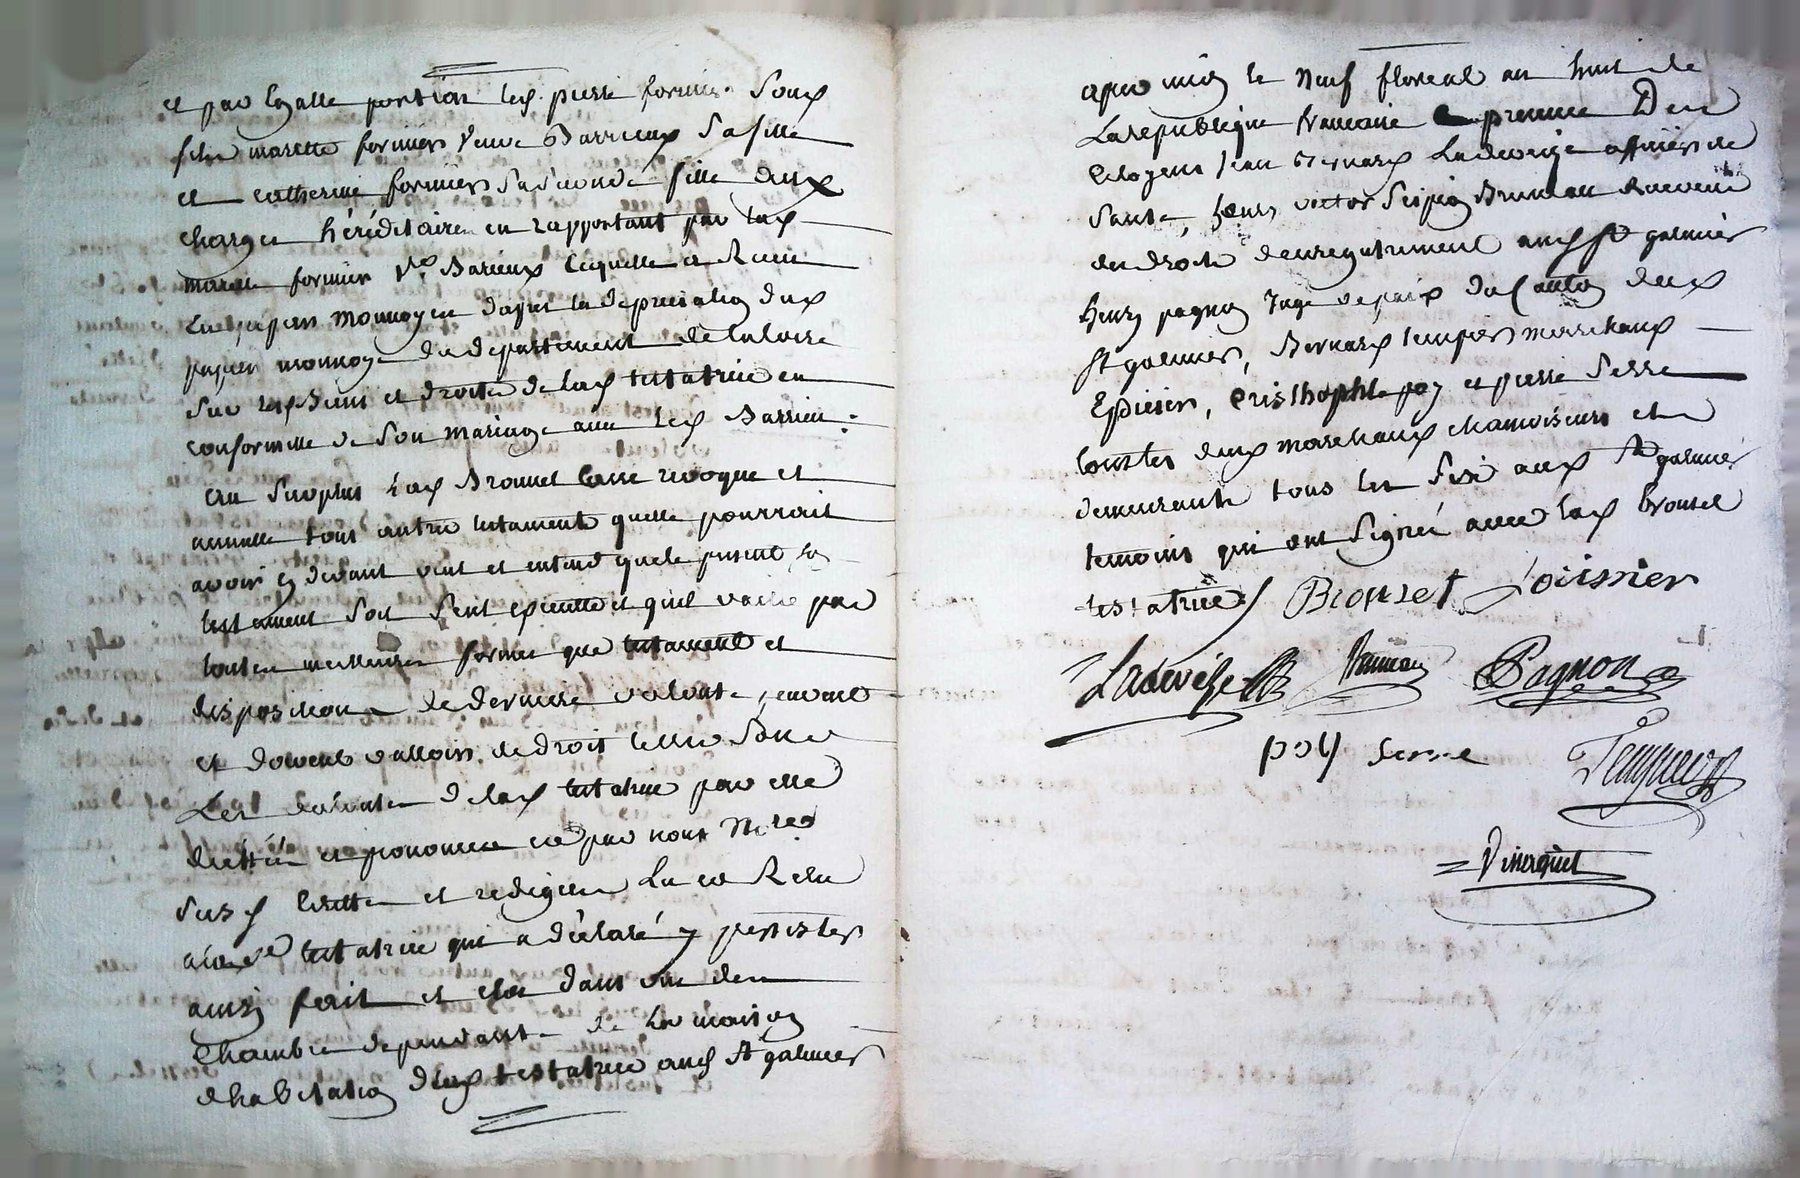 et par egalle portion led. pierre fornier Son
fils marette fornier veuve Barrieux Sa fille
et catherine fornier Sa seconde fille deux
charges héréditaire en rapportant par lad.
marette fornier ve. Barieux lequelle a Recu
en papier monnoyer dapret la depreciation dud.
papier monnoye du departement de la loire
Sur les Biens et droits de lad. testatrice en
conformitte de Son mariage avec led. Barrieu:
au Surplus lad. Bronset Casse revoque et
annulle tous autre testaments quelle pourrait
avoir cy devant veut et entend que le present
testament Soit Seul execuitte et quil vaille par
toutes meilleures formes que testament et
disposition de derniere volonte peuvent
et doivent valloir de droit telle Sont
Les volontes de lad. testatrice par elle
dictée et prononcee et par nous Nre.
Susd. Ecritte et redigee Lu et Relu
a lad. testatrice qui a déclaré y persister
ainsy fait et clos dans une des
chambre dependante de la maison
dhabitation de lad. testatrice aud. St galmier
apres midy le Neuf floreal an huit de
La republique francaise en presence Des
Citoyens Jean Bernard Ladeveize officier de
Santé, henry victor Scipion Bruneau Receveur
des droits denregistrement aud. St galmier
henry pagnon Juge de paix du Canton dud.
St galmier, Bernard tempier marchand
Epicier, Cristhophle poy et pierre Serre
tous les deux marchaux chamoiseurs et
demeurants tous les Six aud. St galmier
temoins qui ont Signé avec lad. Bronset
testatrice / Bronset
Ladevéze Bruneau Pagnon
poy Serre